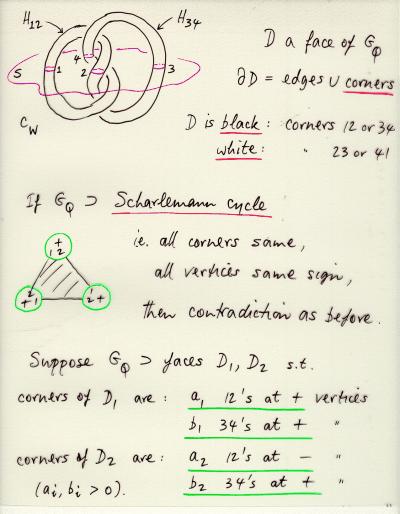 H12 H34
S 1 4 2 3
C_W
D a face of G_Q
∂D = edges ∪ corners
D is black : corners 12 or 34
white : " 23 or 41
If G_Q ⊃ Scharlemann cycle
i.e. all corners same,
all vertices same sign,
then contradiction as before.
+
1 2
2
+ 1
1
2 +
Suppose G_Q ⊃ faces D₁, D₂ s.t.
corners of D₁ are : a₁ 12's at + vertices
b₁ 34's at + "
corners of D₂ are : a₂ 12's at − "
(aᵢ, bᵢ > 0). b₂ 34's at + "